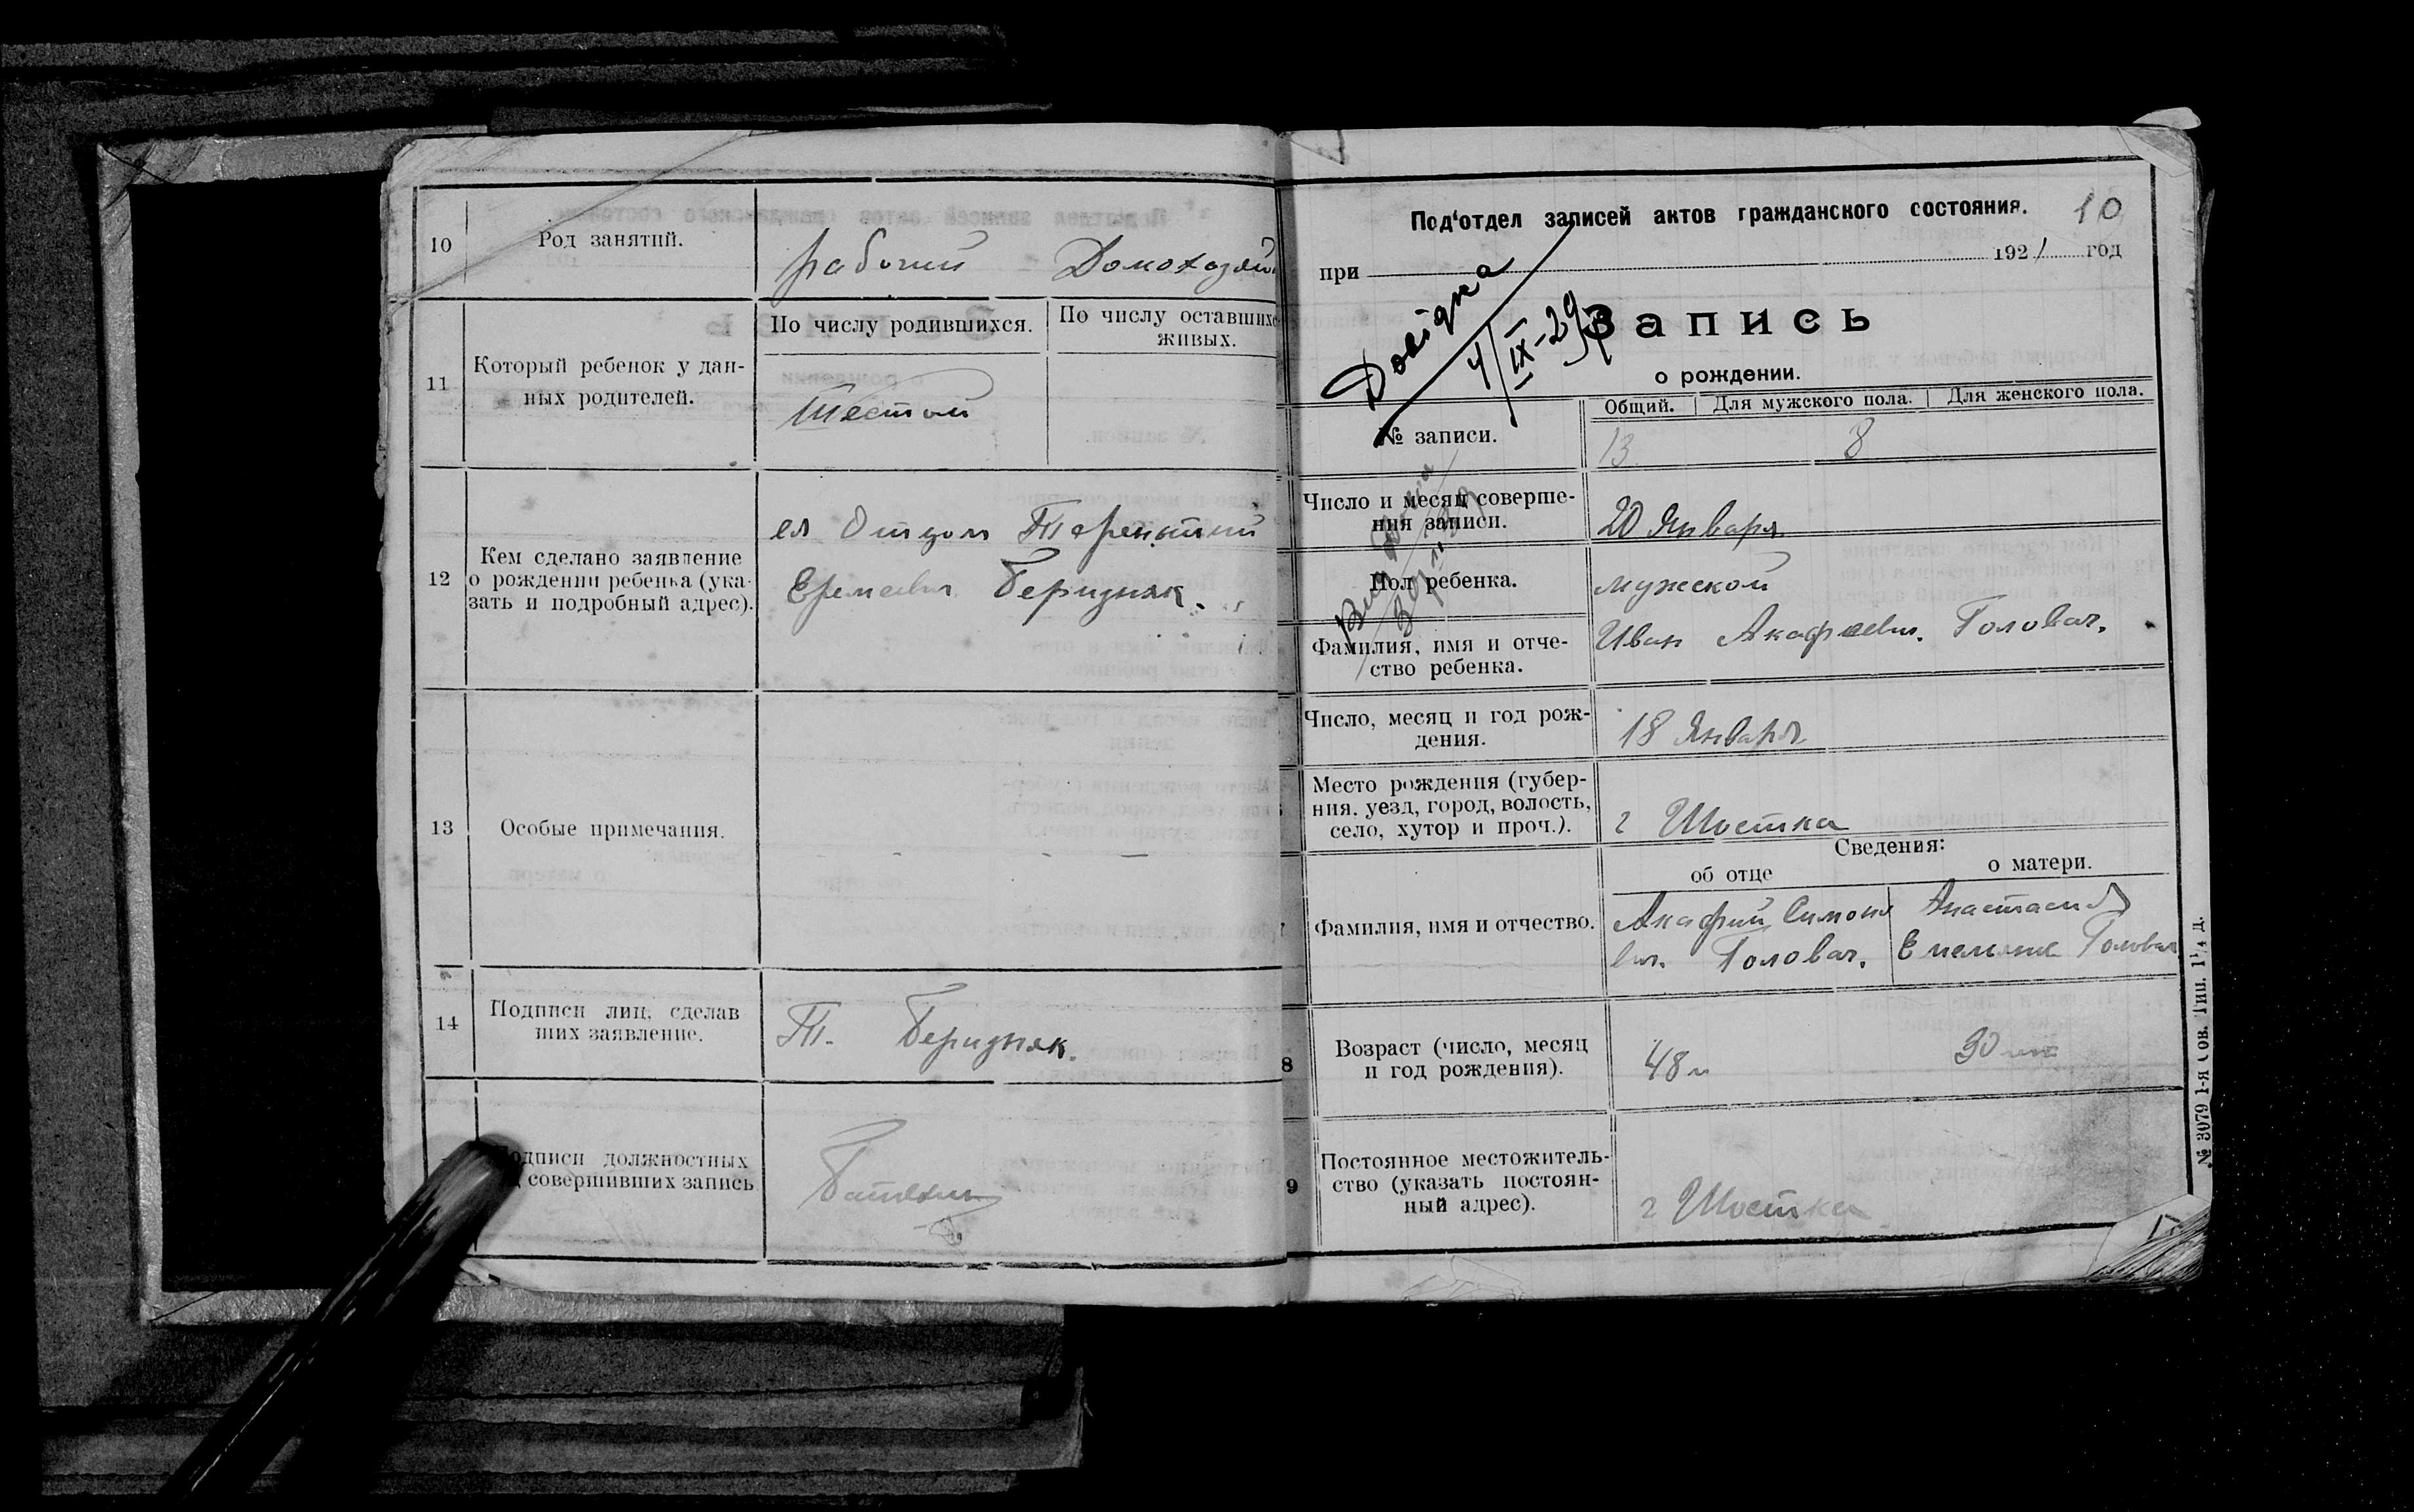 10
Род занятий.
рабочий Домохозяй
11
Который ребенок у дан-
ных родителей.
По числу родившихся.
По числу оставшихс
живых.
Шестой
12
Кем сделано заявление
о рождении ребенка (ука-
зать и подробный адрес).
ея Отцом Терентий
Еремеевич Беридняк.
13
Особые примечания.
14
Подписи лиц, сделав
ших заявление.
Т. Беридняк.
одписи должностных
совершивших запись
Под'отдел записей актов гражданского состояния.
10
при
1921 год
Довідка
4/IX-29р
Запись
о рождении.
Общий. Для мужского пола. Для женского пола.
№ записи.
13 8
Число и месяц соверше-
ния записи.
20 Января
Пол ребенка.
мужской
Фамилия, имя и отче-
ство ребенка.
Иван Акафиевич. Головач.
Число, месяц и год рож-
дения.
18 Января
Место рождения (губер-
ния, уезд, город, волость,
село, хутор и проч.).
г Шостка
Сведения:
об отце
о матери.
Фамилия, имя и отчество.
Акафий Симоно
вич. Головач.
Анастасия
Емельяне Головач
8
Возраст (число, месяц
и год рождения).
48 л
30 лет
9
Постоянное местожитель-
ство (указать постоян-
ный адрес).
г Шостка
№ 3079 1-я Сов. Тип. 1¼ д.